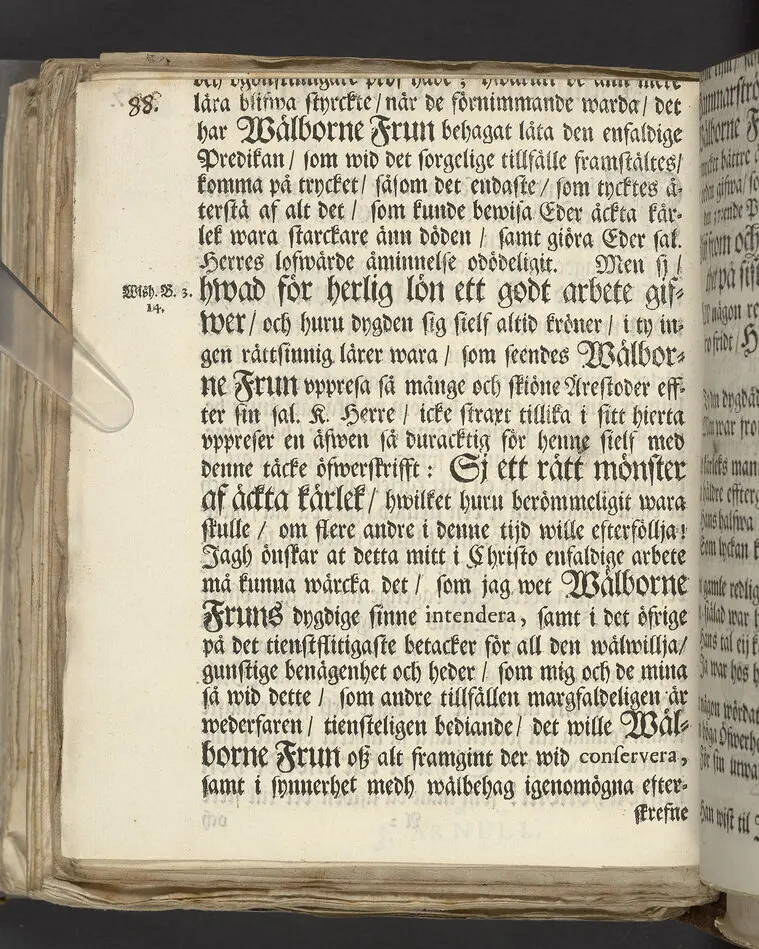 88.
lära blifwa styrckte / när de förnimmande warda / det
har Wälborne Frun behagat låta den enfaldige
Predikan / som wid det sorgelige tillfälle framstältes /
komma på trycket / såsom det endaste / som tycktes å-
terstå af alt det / som kunde bewisa Eder äckta kär-
lek wara starckare änn döden / samt giöra Eder sal.
Herres lofwärde åminnelse odödeligit. Men sj /
Wish. B. 3. 14.
hwad för herlig lön ett godt arbete gif-
wer / och huru dygden sig sielf altid kröner / i ty in-
gen rättsinnig lärer wara / som seendes Wälbor-
ne Frun vppresa så månge och sköne Ärestoder eff-
ter sin sal. K. Herre / icke straxt tillika i sitt hierta
vppreser en äfwen så duracktig för henne sielf med
denne täcke öfwerskrifft : Sj ett rätt mönster
af äckta kärlek / hwilket huru berömmeligit wara
skulle / om flere andre i denne tijd wille efterföllja !
Jagh önskar at detta mitt i Christo enfaldige arbete
må kunna wärcka det / som jag wet Wälborne
Fruns dygdige sinne intendera, samt i det öfrige
på det tienstflitigaste betacker för all den wälwillja /
gunstige benägenhet och heder / som mig och de mina
så wid dette / som andre tillfällen margfaldeligen är
wederfaren / tiensteligen bediande / det wille Wäl-
borne Frun oß alt framgint der wid conservera,
samt i synnerhet medh wälbehag igenomögna efter-
skrefne